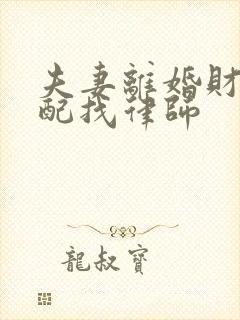 夫妻離婚財
配找律師
龍叔寶